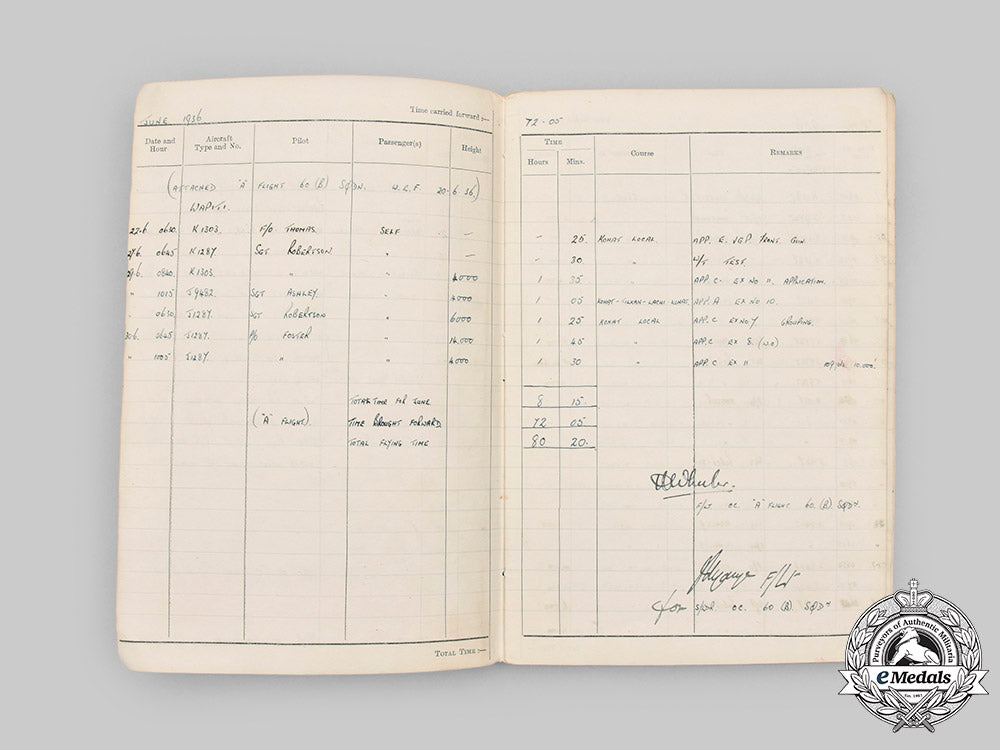 JUNE 1936
Time carried forward :—
Date and Hour Aircraft Type and No. Pilot Passenger(s) Height
(ATTACHED "A" FLIGHT 60 (B) SQDN. W.E.F 20.6.36)
WAPITI.
22.6 0630. K1303. F/O THOMAS. SELF —
27.6. 0645 K1287 SGT ROBERTSON " —
29.6. 0840. K1303 " " 4000
" 1015 J9482. SGT ASHLEY. " 4000
" 0630. J1287. SGT ROBERTSON " 6000
30.6 0645 J1287. P/O FOSTER "
" 1005 J1287. " " 4000
TOTAL TIME FOR JUNE
("A" FLIGHT). TIME BROUGHT FORWARD
TOTAL FLYING TIME
TOTAL TIME :—
72 · 05
TIME
Hours Mins. Course REMARKS
— 25. KOHAT LOCAL. APP. E. FRONT. GUN.
— 30. " W/T TEST.
1 35 " APP. C. EX NO 11. APPLICATION.
1 05 APP. A EX NO 10.
1 25 KOHAT LOCAL APP. C EX NO 7 GROUPING.
1 45 " APP. C EX 8.
1 30 " APP. C EX 11 10.000'
8 15.
72 05
80 20.
F/LT OC. "A" FLIGHT 60. (B) SQDN.
F/Lt
for S/LDR OC. 60 (B). SQDN
Purveyors of Authentic Militaria
eMedals